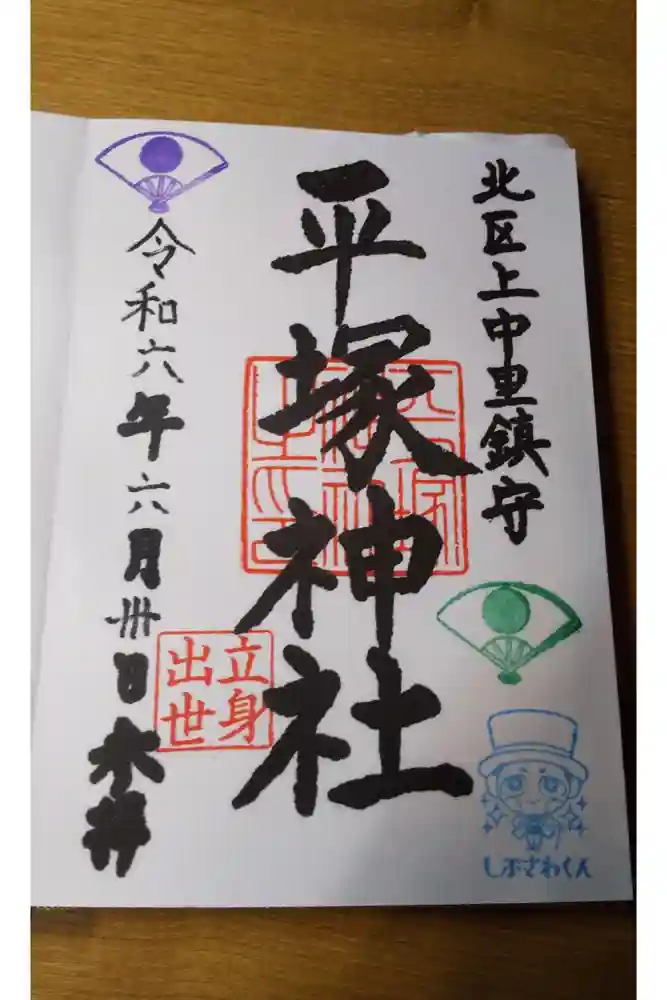 北区上中里鎮守
しぶさわくん
平塚神社
立身
出世
令和六年六月卅日